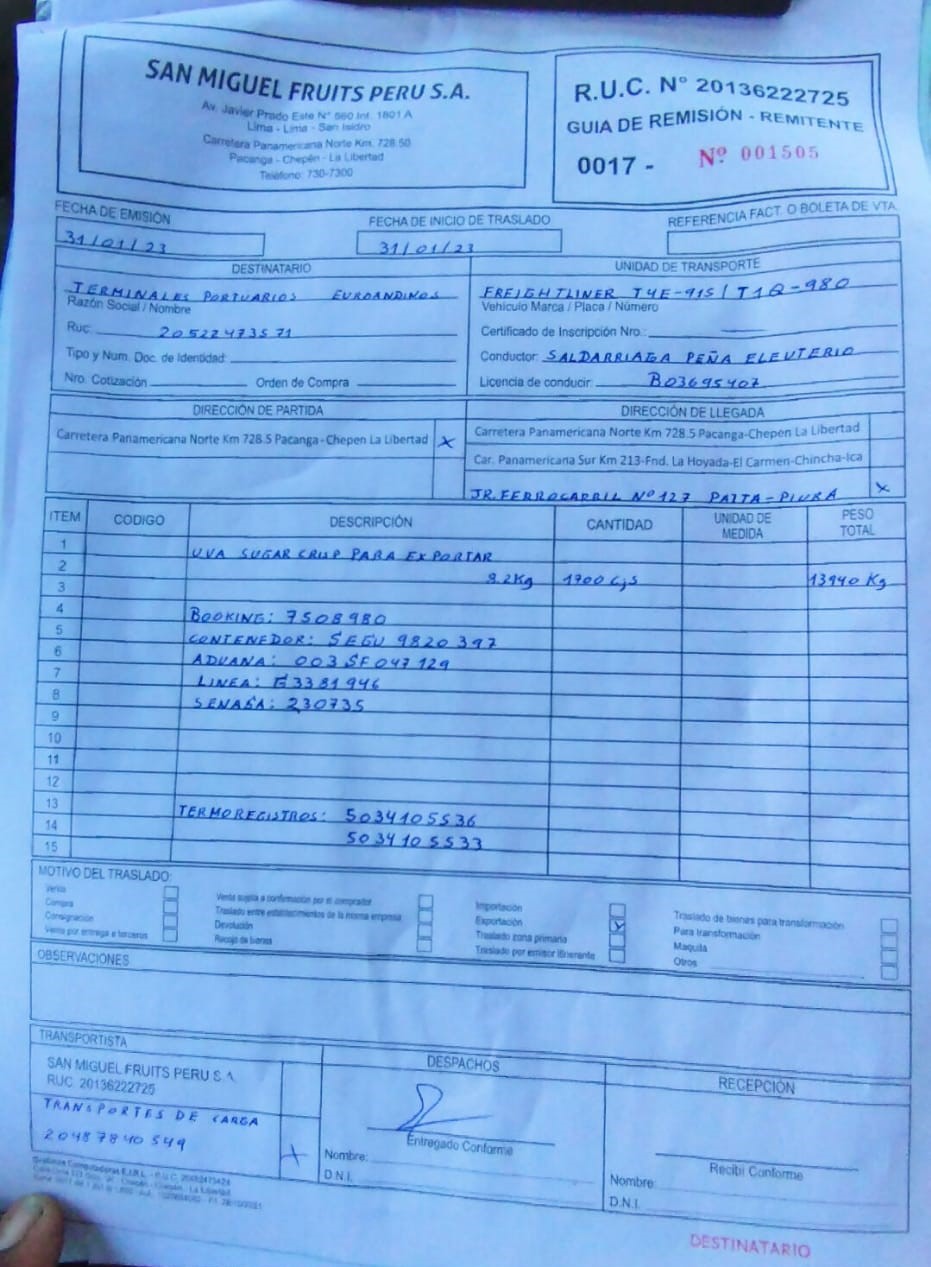 SAN MIGUEL FRUITS PERU S.A.
Av. Javier Prado Este N° 560 Int. 1801 A
Lima - Lima - San Isidro
Carretera Panamericana Norte Km. 728.50
Pacanga - Chepén - La Libertad
Teléfono: 730-7300
R.U.C. N° 20136222725
GUIA DE REMISIÓN - REMITENTE
0017 - Nº 001505
FECHA DE EMISIÓN
31/01/23
FECHA DE INICIO DE TRASLADO
31/01/23
REFERENCIA FACT. O BOLETA DE VTA.
DESTINATARIO
TERMINALES PORTUARIOS EUROANDINOS
Razón Social / Nombre
Ruc: 20522473571
Tipo y Num. Doc. de Identidad:
Nro. Cotización Orden de Compra
UNIDAD DE TRANSPORTE
FREIGHTLINER T4E-915 / T1Q-980
Vehículo Marca / Placa / Número
Certificado de Inscripción Nro.:
Conductor: SALDARRIAGA PEÑA ELEUTERIO
Licencia de conducir: B03695407
DIRECCIÓN DE PARTIDA
Carretera Panamericana Norte Km 728.5 Pacanga-Chepen La Libertad X
DIRECCIÓN DE LLEGADA
Carretera Panamericana Norte Km 728.5 Pacanga-Chepen La Libertad
Car. Panamericana Sur Km 213-Fnd. La Hoyada-El Carmen-Chincha-Ica
JR. FERROCARRIL Nº 127 PAITA-PIURA X
ITEM CODIGO DESCRIPCIÓN CANTIDAD UNIDAD DE MEDIDA PESO TOTAL
1
2 UVA SUGAR CRISP PARA EXPORTAR
3 8.2Kg 1700 Cjs 13940 Kg
4 BOOKING: 7508980
5 CONTENEDOR: SEGU 9820397
6 ADUANA: 003 SF 047129
7 LINEA: E3381946
8 SENASA: 230735
9
10
11
12
13 TERMOREGISTROS: 5034105536
14 5034105533
15
MOTIVO DEL TRASLADO:
Venta
Compra
Consignación
Venta por entrega a terceros
Venta sujeta a confirmación por el comprador
Traslado entre establecimientos de la misma empresa
Devolución
Recojo de bienes
Importación
Exportación
Traslado zona primaria
Traslado por emisor itinerante
Traslado de bienes para transformación
Para transformación
Maquila
Otros
OBSERVACIONES
TRANSPORTISTA
SAN MIGUEL FRUITS PERU S.A.
RUC 20136222725
TRANSPORTES DE CARGA
20487840549
DESPACHOS
Entregado Conforme
Nombre:
D.N.I.
RECEPCIÓN
Recibí Conforme
Nombre:
D.N.I.
DESTINATARIO